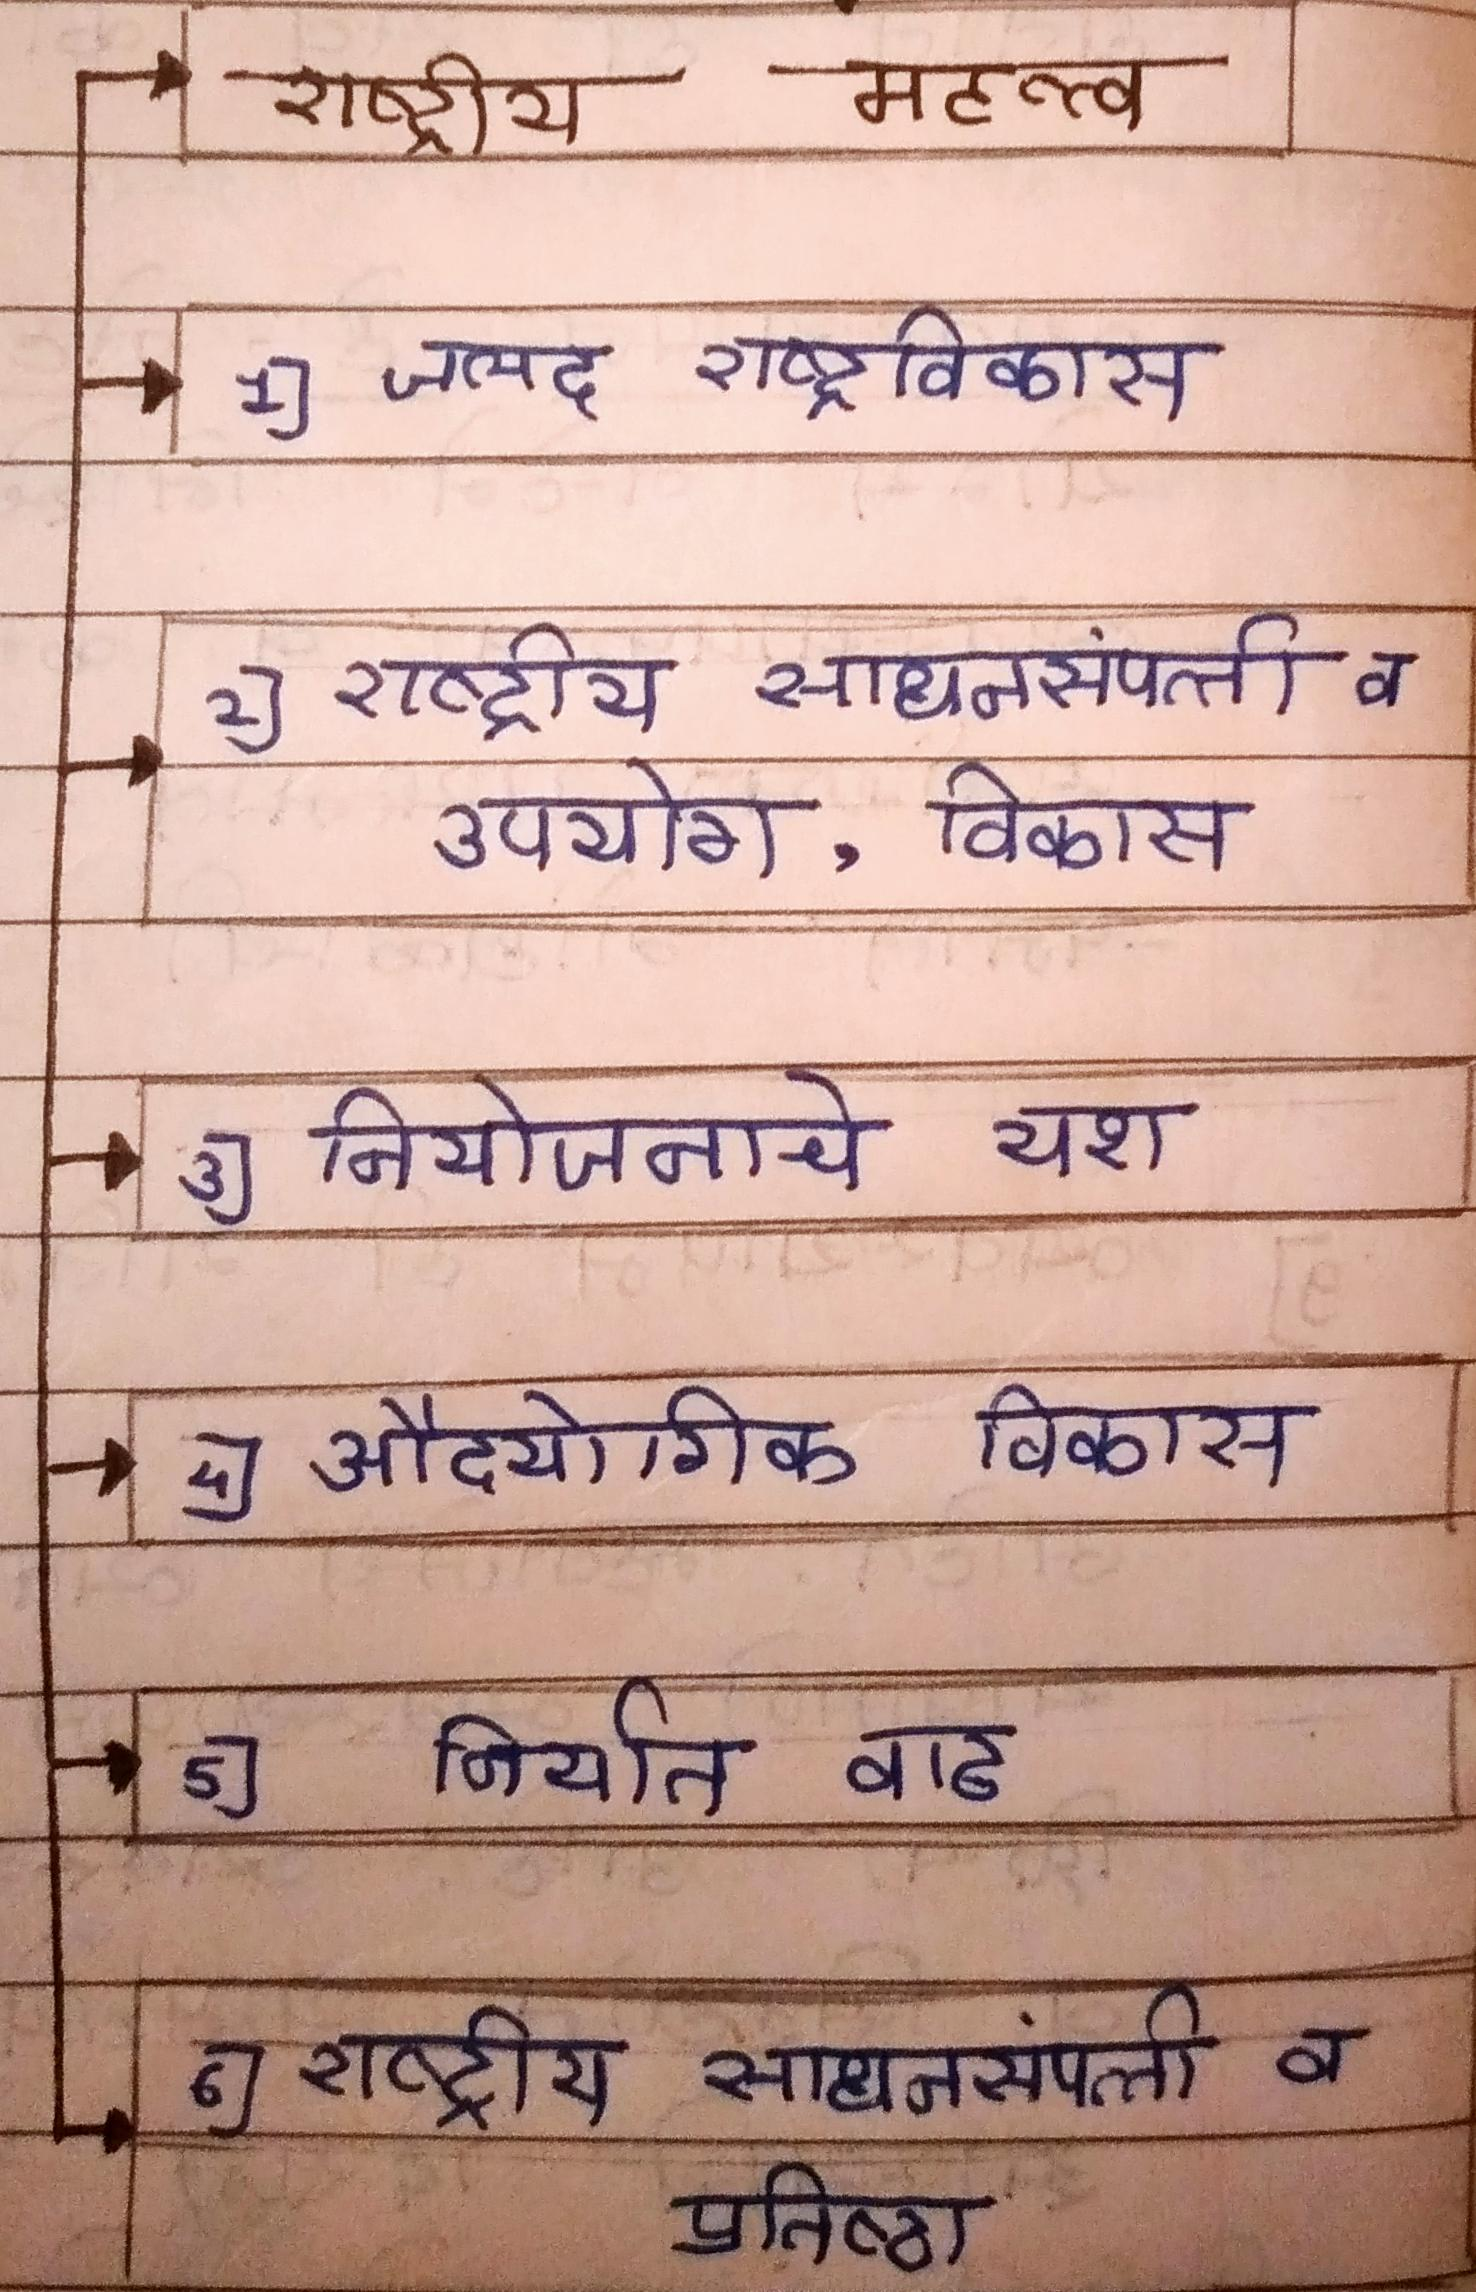 राष्ट्रीय महत्त्व
1) जलद राष्ट्रविकास
2) राष्ट्रीय साधनसंपत्ती व
उपयोग, विकास
3) नियोजनाचे यश
4) औदयोगिक विकास
5) निर्यात वाढ
6) राष्ट्रीय साधनसंपत्ती व
प्रतिष्ठा